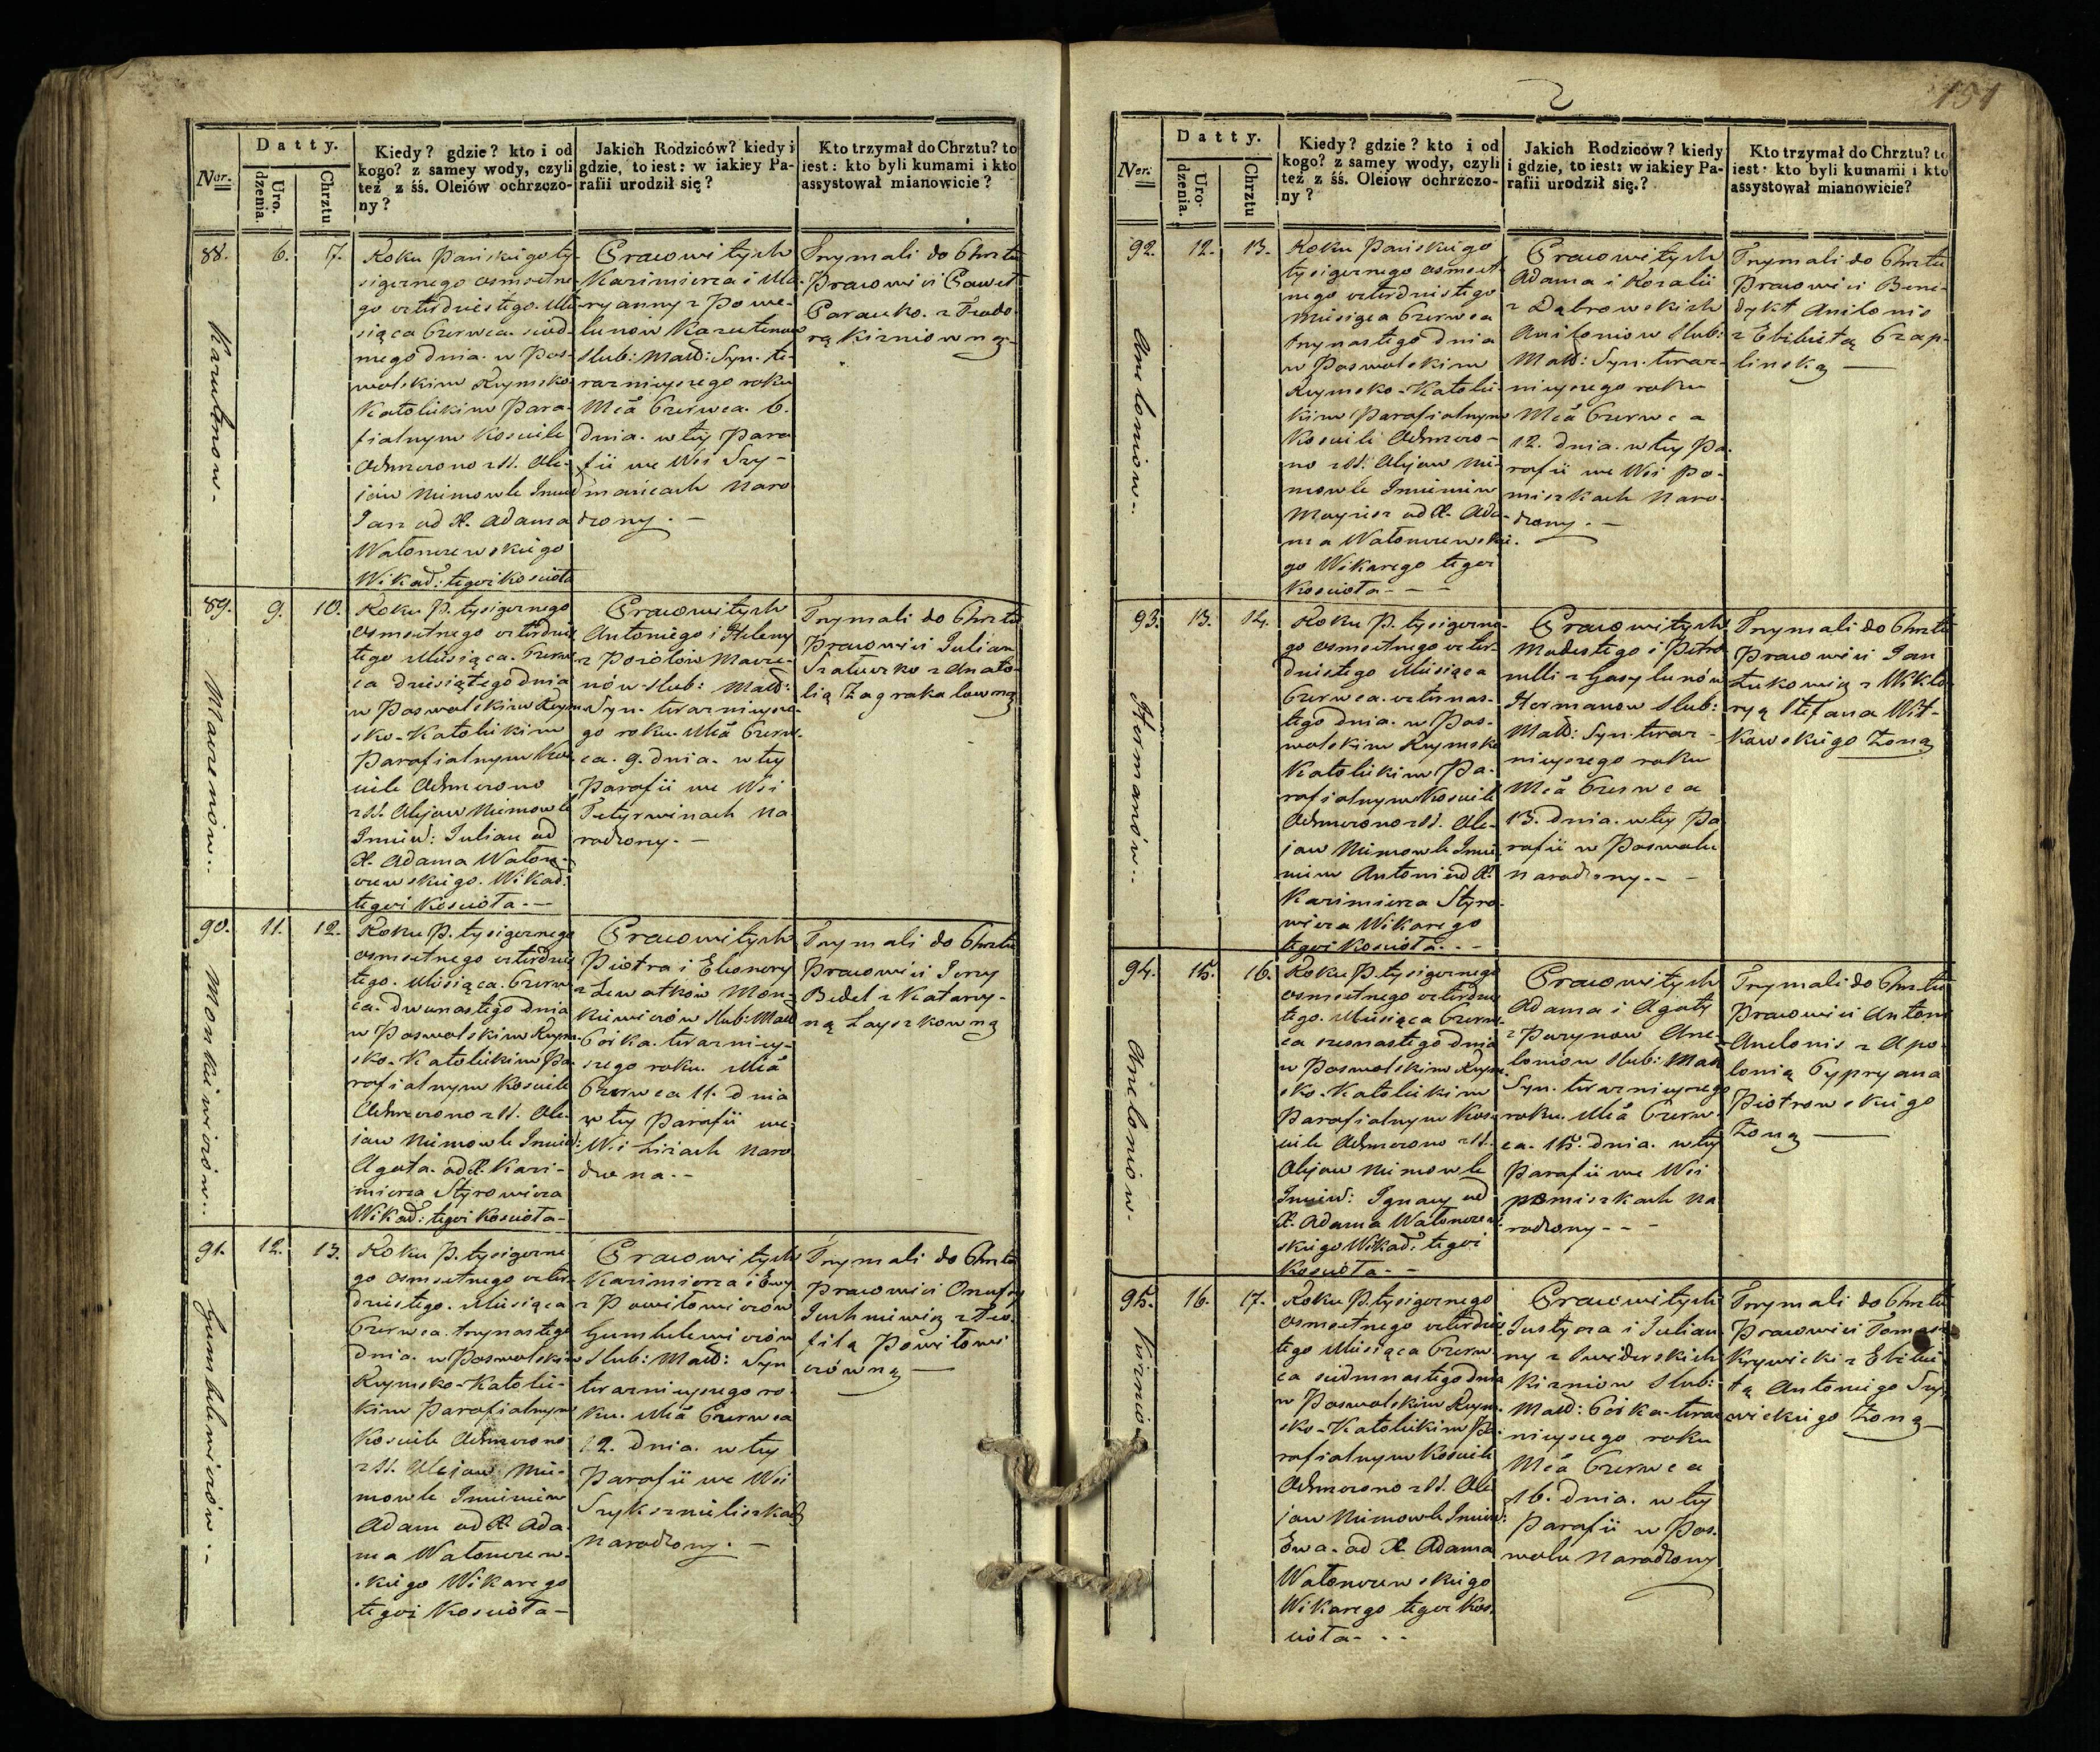 Ner.
Datty.
Uro. dzenia.
Chrztu
Kiedy? gdzie? kto i od
kogo? z samey wody, czyli
też z śś. Oleiów ochrzczo-
ny?
Jakich Rodziców? kiedy i
gdzie, to iest: w iakiey Pa-
rafii urodził się?
Kto trzymał do Chrztu? to
iest: kto byli kumami i kto
assystował mianowicie?
88.
6.
7.
Roku Pańskiego ty-
sięcznego osmsetne-
go czterdziestego. Mie-
siąca Czerwca. siód-
mego dnia. w Pos-
wolskim Rzymsko
Katolickim Para-
fialnym Kosciele
Ochrzczono z SS. Ole-
jów Niemowle Imie:
Jan od X. Adama
Watonczewskiego
Wikar: tegoż Kościoła
Pracowitych
Kazimierza i Ma-
ryanny z Powe-
lunow
Slub: Małż: Syn. te-
razniejszego roku
Mca Czerwca. 6.
dnia. w tej Para
fii we Wsi Szy-
mańcach Naro
dzony. -
Trzymali do Chrztu
Pracowici Paweł
z Teodo-
rą Kirniowną
89.
9.
10.
Maczenow
Roku P. tysięcznego
osmsetnego czterdzies
tego Miesiąca. Czerw
ca dziesiątego dnia
w Poswolskim Rzym-
sko-Katolickim
Parafialnym Kos-
ciele Ochrzczono
z SS. Olejow Niemowle
Imien: Julian od
X. Adama Waton-
czewskiego. Wikar:
tegoż Kościoła. -
Pracowitych
Antoniego i Heleny
z Poziołow Macze-
nów Slub: Małż:
Syn. terazniejsze-
go roku. Mca Czerw-
ca. 9. dnia. w tej
Parafii we Wsi
Tetyrwinach Na
rodzony. -
Trzymali do Chrztu
Pracowici Julian
z Anato-
lią Zagrakalowną
90.
11.
12.
Monkiewiczów
Roku P. tysięcznego
osmsetnego czterdzies
tego. Miesiąca. Czerw
ca. dwunastego dnia
w Poswolskim Rzym-
sko-Katolickim Pa-
rafialnym Kosciele
Ochrzczono z SS. Ole-
jow Niemowle Imie:
Agata. od X. Kazi-
mierza Styrowicza
Wikar: tegoż Kościoła-
Pracowitych
Piotra i Eleonory
z Lewatków Mon-
kiewiczów Slub: Małż
Córka. terazniej-
szego roku. Mca
Czerwca 11. dnia
w tej Parafii we
Wsi Naro
dzona. -
Trzymali do Chrztu
Pracowici Jerzy
Bedel z Katarzy-
ną Layszkowną
91.
12.
13.
Gumbelewiczów
Roku P. tysięczne
go osmsetnego czter-
dziestego. Miesiąca
Czerwca. trzynastego
dnia. w Poswolskim
Rzymsko-Katolic-
kim Parafialnym
Kosciele Ochrzczono
z SS. Olejow Nie-
mowle Imieniem
Adam od X. Ada-
ma Watonczew-
skiego Wikarego
tegoż Kościoła-
Pracowitych
Kazimierza i Ewy
z Powiłowiczów
Gumbelewiczów
Slub: Małż: Syn
terazniejszego ro-
ku. Mca Czerwca
12. dnia. w tej
Parafii we Wsi
Szykszneliszkach
Narodzony. -
Trzymali do Chrztu
Pracowici Onufry
Juchniewicz z Teo-
filą Powiłowi
czówną
2
151
Ner.
Datty.
Uro- dzenia.
Chrztu
Kiedy? gdzie? kto i od
kogo? z samey wody, czyli
też z śś. Oleiow ochrzczo-
ny?
Jakich Rodziców? kiedy
i gdzie, to iest: w iakiey Pa-
rafii urodził się?
Kto trzymał do Chrztu? to
iest: kto byli kumami i kto
assystował mianowicie?
92.
12.
13.
Aneloniow
Roku Pańskiego
tysięcznego osmset-
nego czterdziestego
Miesiąca Czerwca
trzynastego dnia
w Poswolskim
Rzymsko-Katolic-
kim Parafialnym
Kosciele Ochrzczo-
no z SS. Olejow Nie-
mowle Imieniem
od X. Ada-
ma Watonczewskie-
go Wikarego tegoż
Kościoła - - -
Pracowitych
Adama i Rozalii
z Dąbrowskich
Aniloniow Slub:
Małż: Syn. teraz-
niejszego roku
Mca Czerwca
12. dnia. w tej Pa-
rafii we Wsi Po-
miszkach Naro-
dzony. -
Trzymali do Chrztu
Pracowici Bene-
dykt Anilonis
z Elżbietą Czap-
linską
93.
13.
14.
Hermanów
Roku P. tysięczne-
go osmsetnego czter-
dziestego Miesiąca
Czerwca. czternas-
tego dnia. w Pos-
wolskim Rzymsko
Katolickim Pa-
rafialnym Kosciele
Ochrzczono z SS. Ole-
jow Niemowle Imie-
niem Antoni od X.
Kazimierza Styro-
wicza Wikarego
tegoż Kościoła. - -
Pracowitych
Modestego i Petro
nelli z Gasylunów
Hermanow Slub:
Małż: Syn. teraz-
niejszego roku
Mca Czerwca
13. dnia. w tej Pa
rafii w Poswolu
Narodzony. -
Trzymali do Chrztu
Pracowici Jan
Łukowicz z Wikto-
ryą Stefana Wit-
kowskiego Żoną
94.
15.
16.
Anelonow
Roku P. tysięcznego
osmsetnego czterdzies
tego. Miesiąca Czerw-
ca szesnastego dnia
w Poswolskim Rzym-
sko-Katolickim
Parafialnym Kos-
ciele Ochrzczono z SS.
Olejow Niemowle
Imien: Ignacy od
X. Adama Watonczew-
skiego Wikar: tegoż
Kościoła. -
Pracowitych
Adama i Agaty
z Puzynow Ane-
loniow Slub: Małż
Syn. terazniejszego
roku. Mca Czerw-
ca. 15. dnia. w tej
Parafii we Wsi
Pomiszkach Na
rodzony - -
Trzymali do Chrztu
Pracowici Antoni
Anelonis z Apo-
lonią Cypryana
Piotrowskiego
Żoną
95.
16.
17.
Kirniow
Roku P. tysięcznego
osmsetnego czterdzies
tego Miesiąca Czerw
ca siedmnastego dnia
w Poswolskim Rzym-
sko-Katolickim Pa-
rafialnym Kosciele
Ochrzczono z SS. Ole
jow Niemowle Imien:
Ewa. od X. Adama
Watonczewskiego
Wikarego tegoż Koś-
cioła - -
Pracowitych
Justyna i Julian-
ny z Swiderskich
Kirniow Slub:
Małż: Córka-teraz
niejszego roku
Mca Czerwca
16. dnia. w tej
Parafii w Pos-
wolu Narodzony
Trzymali do Chrztu
Pracowici Tomasz
Krywicki z Elżbie-
tą Antoniego Szy-
wickiego Żoną